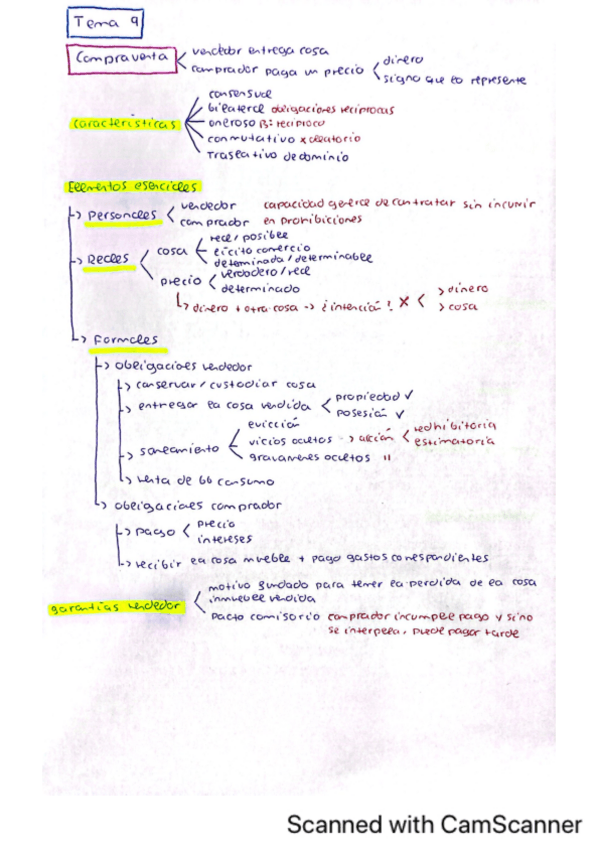 Tema 9
Compraventa
vendedor entrega cosa
comprador paga un precio
dinero
signo que lo represente
características
consensual
bilateral obligaciones recíprocas
oneroso β: recíproco
conmutativo x aleatorio
traslativo de dominio
Elementos esenciales
→ Personales
vendedor
comprador
capacidad general de contratar sin incurrir
en prohibiciones
→ Reales
cosa
real/posible
lícito comercio
determinada/determinable
precio
verdadero/real
determinado
→ dinero + otra cosa → ¿intención? X
> dinero
> cosa
→ Formales
→ obligaciones vendedor
→ conservar/custodiar cosa
→ entregar la cosa vendida
propiedad ✓
posesión ✓
→ saneamiento
evicción
vicios ocultos → acción
redhibitoria
estimatoria
gravámenes ocultos "
→ venta de bb consumo
→ obligaciones comprador
→ pago
precio
intereses
→ recibir la cosa mueble + pago gastos correspondientes
garantías vendedor
motivo fundado para temer la perdida de la cosa
inmueble vendida
pacto comisorio comprador incumple pago y si no
se interpela, puede pagar tarde
Scanned with CamScanner